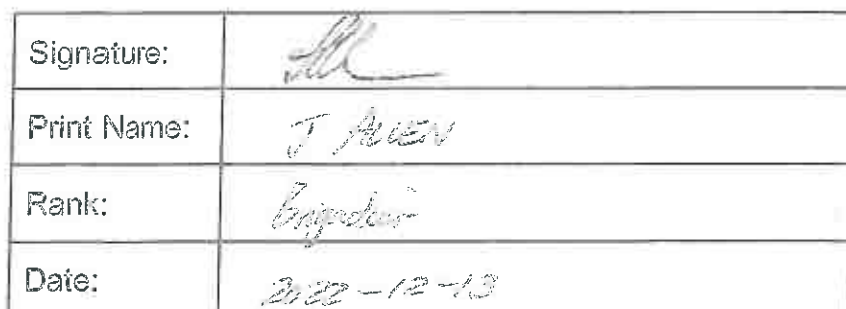 Signature:
Print Name: J ALLEN
Rank: Brigadier
Date: 2022-12-13